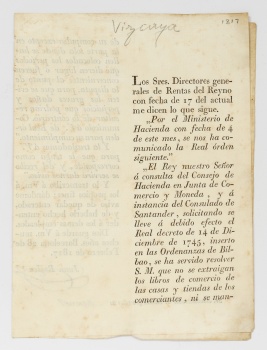 Vizcaya
1817
Los Sres. Directores gene-
rales de Rentas del Reyno
con fecha de 17 del actual
me dicen lo que sigue.
„Por el Ministerio de
Hacienda con fecha de 4
de este mes, se nos ha co-
municado la Real órden
siguiente."
„El Rey nuestro Señor
á consulta del Consejo de
Hacienda en Junta de Co-
mercio y Moneda, y á
instancia del Consulado de
Santander, solicitando se
lleve á debido efecto el
Real decreto de 14 de Di-
ciembre de 1745, inserto
en las Ordenanzas de Bil-
bao, se ha servido resolver
S. M. que no se extraigan
los libros de comercio de
las casas y tiendas de los
comerciantes, ni se man-